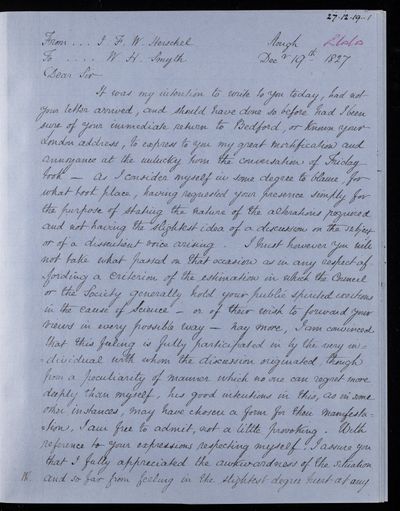 27-12-19-1
From ... J. F. W. Herschel Slough
To ..... W. H. Smyth Decr 19th 1827
Dear Sir
It was my intention to write to you today, had not
your letter arrived, and should have done so before had I been
sure of your immediate return to Bedford, or known your
London address, to express to you my great mortification and
annoyance at the unlucky turn the conversation of Friday
took — as I consider myself in some degree to blame, for
what took place, having requested your presence simply for
the purpose of stating the nature of the alterations required
and not having the slightest idea of a discussion on the subject
or of a dissentient voice arising. I trust however you will
not take what passed on that occasion as in any respect af-
-fording a criterion of the estimation in which the Council
or the Society generally hold your public spirited exertions
in the cause of Science — or of their wish to forward your
views in every possible way — nay more, I am convinced
that this feeling is fully participated in by the very in-
-dividual with whom the discussion originated though
from a peculiarity of manner which no one can regret more
deeply than myself, his good intentions in this, as in some
other instances, may have chosen a form for their manifesta-
-tion, I am free to admit, not a little provoking. With
reference to your expressions respecting myself, I assure you
that I fully appreciated the awkwardness of the situation
and so far from feeling in the slightest degree hurt at any